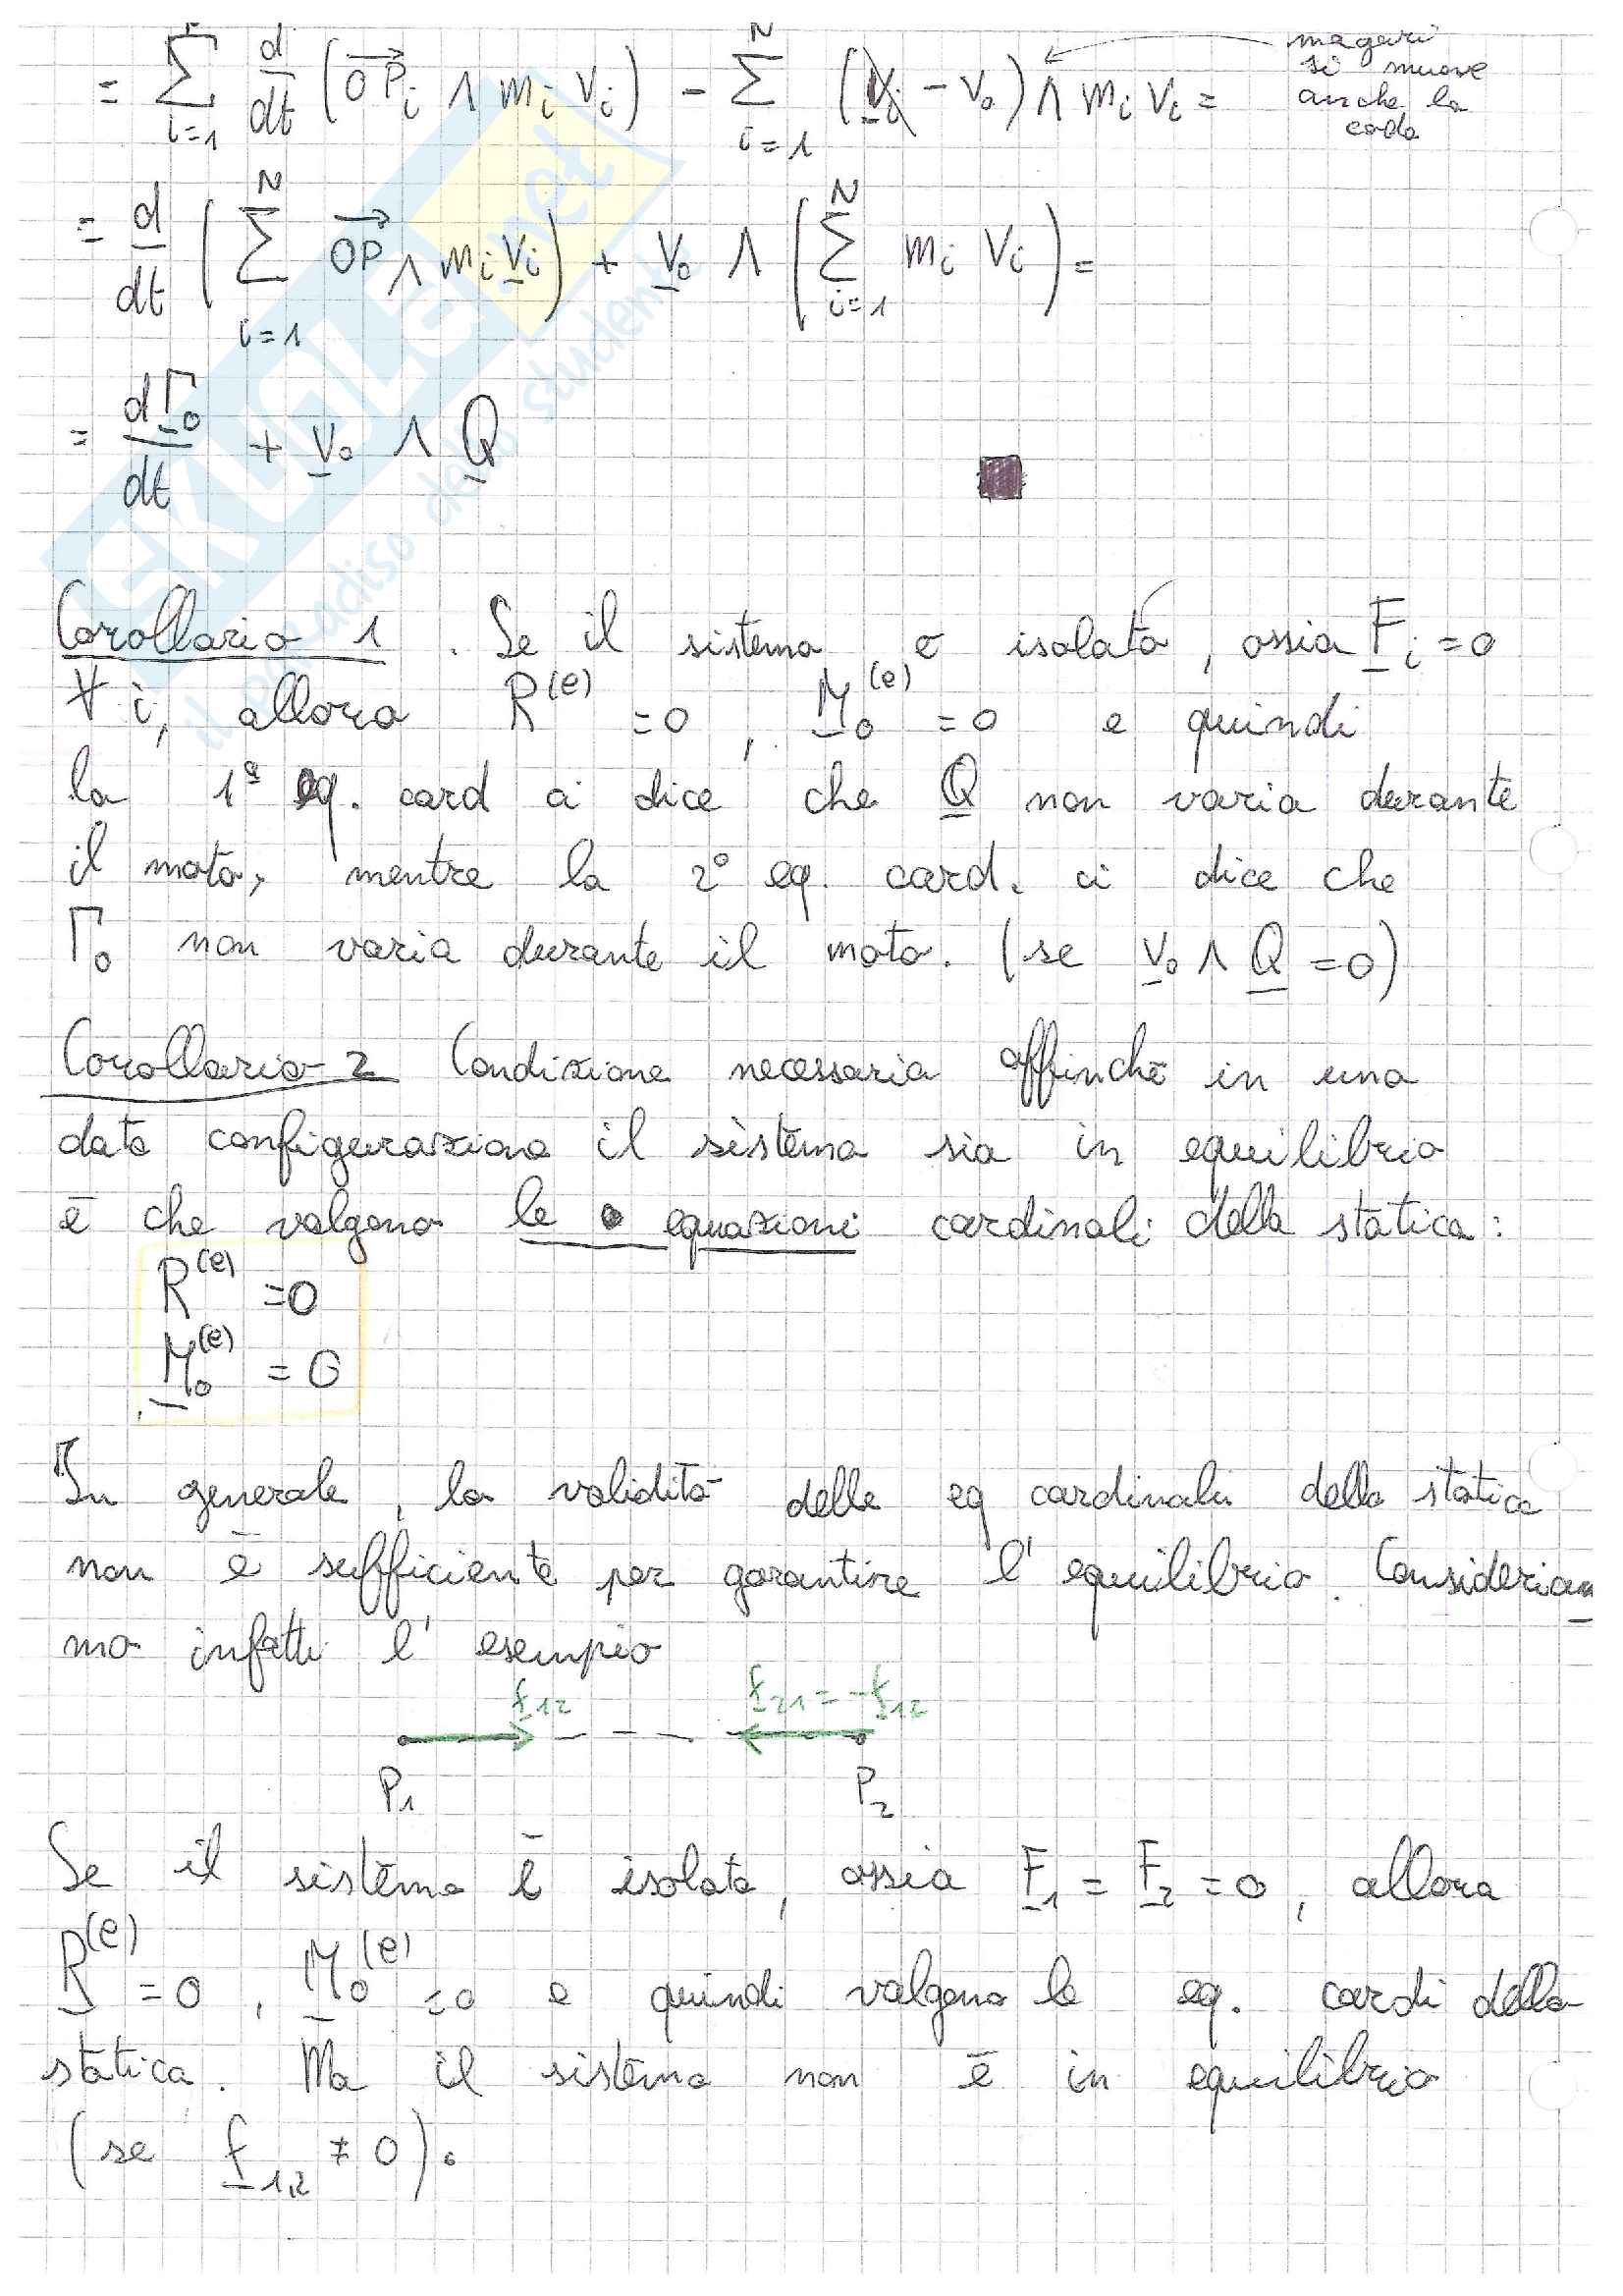 = \sum_{i=1}^{N} \frac{d}{dt} (\overrightarrow{OP}_i ∧ m_i v_i) - \sum_{i=1}^{N} (v_i - v_0) ∧ m_i v_i =
magari
si muove
anche la
coda
= \frac{d}{dt} ( \sum_{i=1}^{N} \overrightarrow{OP} ∧ m_i v_i ) + v_0 ∧ ( \sum_{i=1}^{N} m_i v_i ) =
= \frac{dΓ_0}{dt} + v_0 ∧ Q
Corollario 1. Se il sistema è isolato, ossia F_i = 0
∀ i, allora R^(e) = 0, M_0^(e) = 0 e quindi
la 1ª eq. card ci dice che Q non varia durante
il moto, mentre la 2° eq. card. ci dice che
Γ_0 non varia durante il moto. (se v_0 ∧ Q = 0)
Corollario 2 Condizione necessaria affinchè in una
data configurazione il sistema sia in equilibrio
è che valgano le equazioni cardinali della statica:
R^(e) = 0
M_0^(e) = 0
In generale, la validità delle eq cardinali della statica
non è sufficiente per garantire l'equilibrio. Consideria
mo infatti l'esempio
f_12 f_21 = -f_12
P_1 P_2
Se il sistema è isolato, ossia F_1 = F_2 = 0, allora
R^(e) = 0, M_0^(e) = 0 e quindi valgono le eq. cardi della
statica. Ma il sistema non è in equilibrio
(se f_12 ≠ 0).